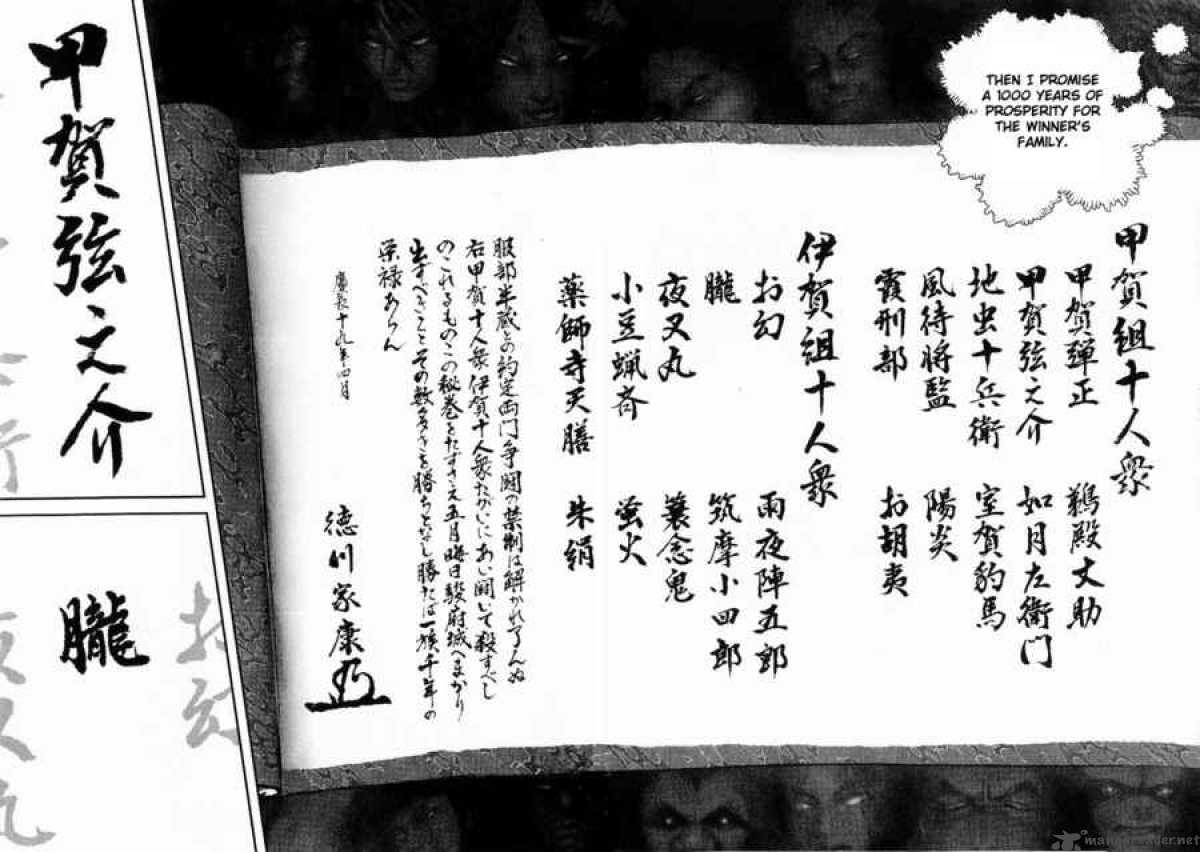 THEN I PROMISE
A 1000 YEARS OF
PROSPERITY FOR
THE WINNER'S
FAMILY.
甲賀組十人衆
甲賀弾正 鵜殿丈助
甲賀弦之介 如月左衛門
地虫十兵衛 室賀豹馬
風待将監 陽炎
霞刑部 お胡夷
伊賀組十人衆
お幻 雨夜陣五郎
朧 筑摩小四郎
夜叉丸 蓑念鬼
小豆蝋斉 蛍火
薬師寺天膳 朱絹
服部半蔵との約定両門争闘の禁制は解かれ了んぬ
右甲賀十人衆伊賀十人衆たがいにあい闘いて殺すべし
のこれるものこの秘巻をたずさえ五月晦日駿府城へまかり
出ずべきことその数多きを勝ちとなし勝たば一族千年の
栄禄あらん
慶長十九年四月
徳川家康
甲賀弦之介
朧
お幻
mangareader.net